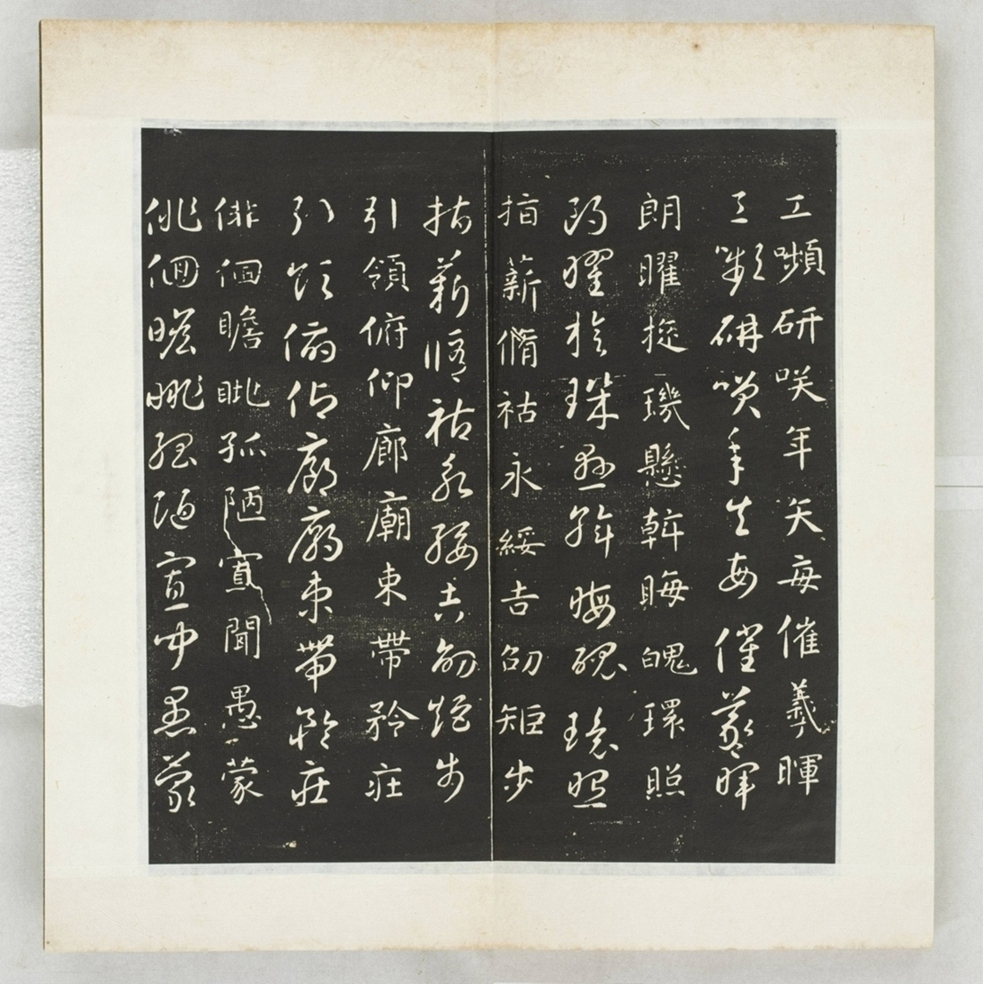 工嚬研咲年矢每催羲暉
工嚬研咲年矢每催羲暉
朗曜旋璣懸斡晦魄環照
朗曜旋璣懸斡晦魄環照
指薪脩祜永綏吉劭矩步
指薪脩祜永綏吉劭矩步
引領俯仰廊廟束帶矜庄
引領俯仰廊廟束帶矜庄
俳佪瞻眺孤陋寡聞愚蒙
俳佪瞻眺孤陋寡聞愚蒙